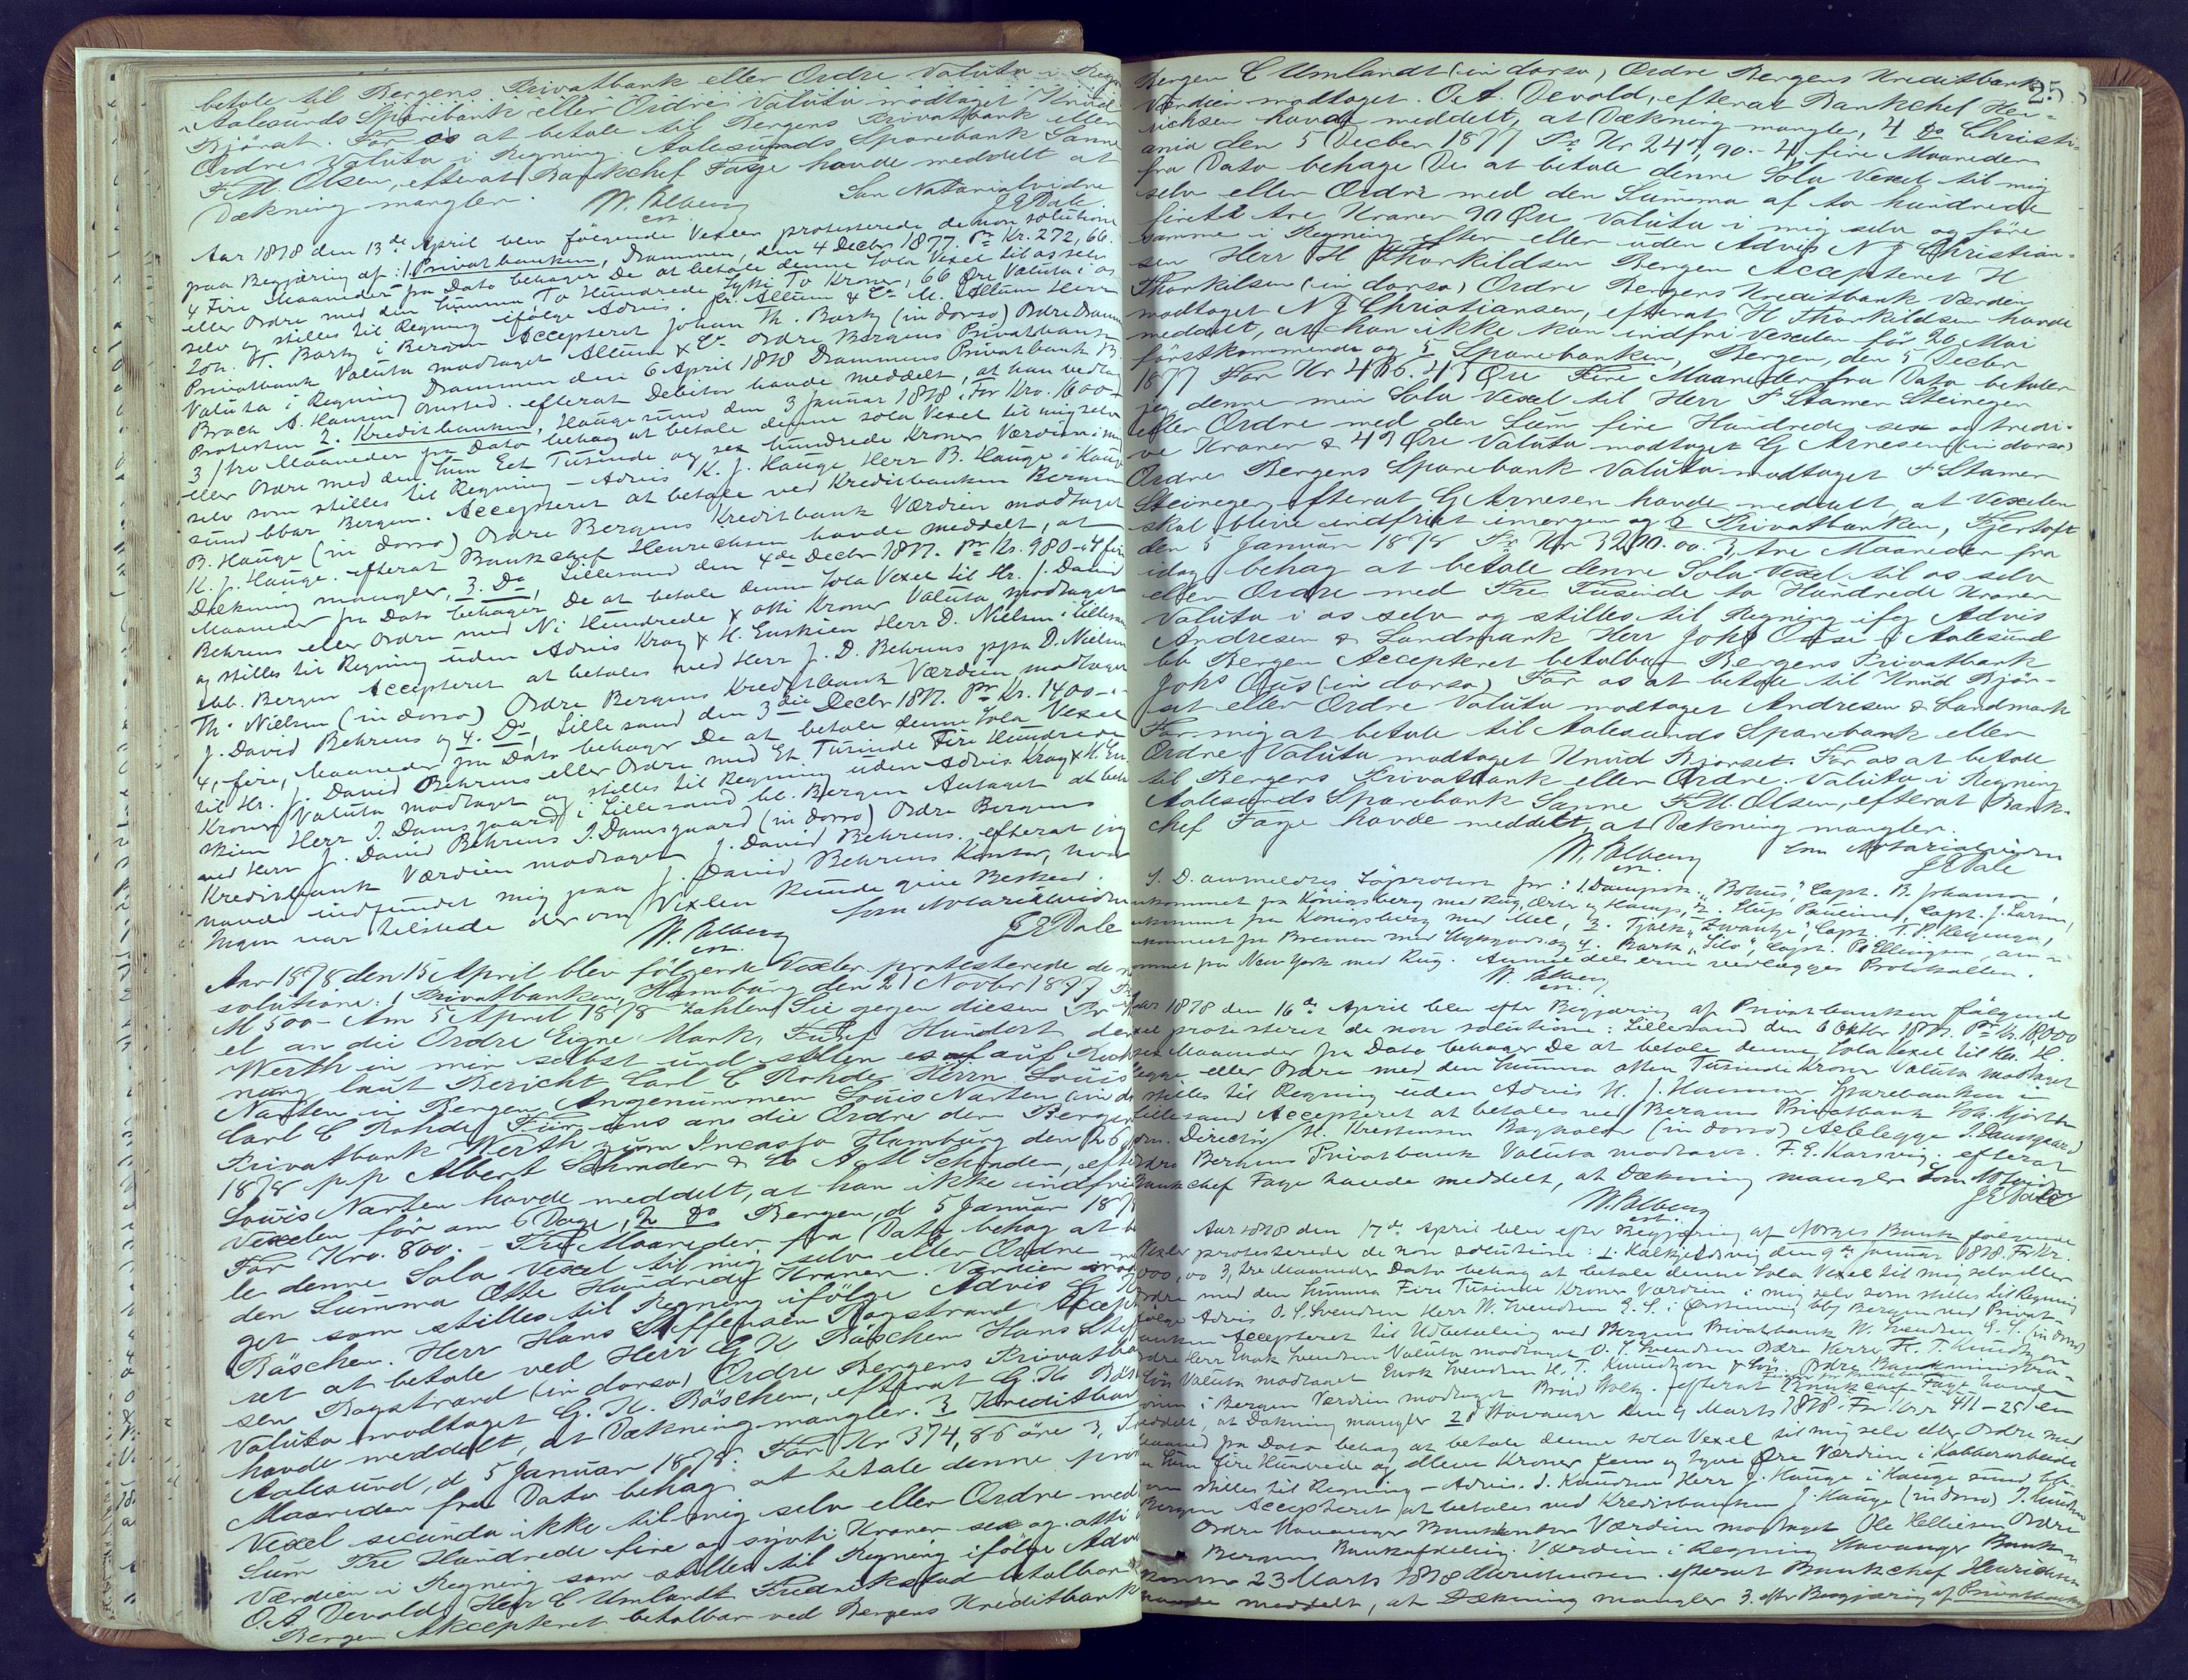 betale til Bergens Privatbank eller Ordre Valuta i Regn
Aalesunds Sparebank eller Ordre Valuta modtaget Knud
Bjørset. For os at betale til Bergens Privatbank eller
Ordre Valuta i Regning. Aalesunds Sparebank Sanne
F. M. Olsen, efterat Bankchef Faye havde meddelt at
Dækning mangler.
Som Notarialvidne
J E Dale.
Aar 1878 den 13de April blev følgende Vexler protesterede de non solutione
paa Begjæring af: 1. Privatbanken, Drammen, den 4 Decbr 1877. Pr Kr. 272,66.
4 Fire Maaneder fra Dato behager De at betale denne Sola Vexel til os selv
eller Ordre med den Summa To Hundrede Sytti To Kroner, 66 Øre Valuta i os
selv og stilles til Regning ifølge Advis. pr. Altum & Co M. Altum Herr
Joh. Th. Barth i Bergen Accepteret Johan Th. Barth (in dorso) Ordre Dramm
Privatbank Valuta modtaget Altum & Co Ordre Bergens Privatbank
Valuta i Regning Drammen den 6 April 1878 Drammens Privatbank B.
Brach A. Hansen Omsted. efterat Debitor havde meddelt, at han vedtog
Protesten 2. Kreditbanken, Haugesund den 3 Januar 1878. For Kro. 1600-
3/tre Maaneder fra Dato behag at betale denne sola Vexel til mig selv
eller Ordre med den Sum Eet Tusinde og sex hundrede Kroner Værdien i mig
selv som stilles til Regning - Advis K. J. Hauge Herr B. Hauge i Hauge
sund bbar Bergen. Accepteret at betale ved Kreditbanken Bergen
B. Hauge (in dorso) Ordre Bergens Kreditbank Værdien modtaget
K. J. Hauge. efterat Bankchef Henrichsen havde meddelt, at
Dækning mangler, 3. Do, Lillesand den 4de Decbr 1877. Pr Kr. 980-. 4 fire
Maaneder fra Dato behager De at betale denne Sola Vexel til Hr. J. David
Behrens eller Ordre med Ni Hundrede & otti Kroner Valuta modtaget
og stilles til Regning uden Advis Krag & H. Enskien Herr D. Nielsen i Lillesand
bb. Bergen Accepteret at betales ved Herr J. D. Behrens ppa D. Nielsen
Th. Nielsen (in dorso) Ordre Bergens Kreditbank Værdien modtaget
J. David Behrens og 4. Do, Lillesand den 3die Decbr 1877. Pr Kr. 1400-.
4, fire, Maaneder fra Dato behager De at betale denne Sola Vexel
til Hr. J. David Behrens eller Ordre med Et Tusinde Fire Hundrede
Kroner Valuta modtaget og stilles til Regning uden Advis Krag & H. En
skien Herr J. Damsgaard i Lillesand bb. Bergen Antaget at betale
ved Herr J. David Behrens J. Damsgaard (in dorso) Ordre Bergens
Kreditbank Værdien modtaget J. David Behrens. efterat jeg
havde indfundet mig paa J. David Behrens Kontor, hvor
Ingen var tilstede der om Vexlen kunde give Besked.
Som Notarialvidne
J E Dale
Aar 1878 den 15 April blev følgende Vexler protesterede de non
solutione: 1 Privatbanken, Hamburg den 21 Novbr 1877 Pr
M 500- Am 5 April 1878 zahlen Sie gegen diesen
el an die Ordre Eigne Mark, Fünf Hundert den
Werth in mir selbst und stellen es auf Rech
nung laut Bericht Carl C Rohde Herrn Louis
Narten in Bergen Angenommen Louis Narten (in do
Carl C Rohde Für uns an die Ordre der Bergen
Privatbank Werth zum Incasso Hamburg den 26
1878 p.p Albert Schrader & Co A M Schrader, efter
Louis Narten havde meddelt, at han ikke indfrier
Vexelen før om 6 Dage, 2 do Bergen, d 5 Januar 1878
For Kro. 800.- Tre Maaneder fra Dato behag at be
le denne Sola Vexel til mig selv eller Ordre med
den Summa Otte Hundrede Kroner. Værdien modta
get som stilles til Regning ifølge Advis G K
Räschen. Herr Hans Steffensen Rogstrand Accepte
ret at betale ved Herr G K Räschen Hans Stef
sen Rogstrand (in dorso) Ordre Bergens Privatba
Valuta modtaget G. K. Räschen, efterat G. K. Räs
havde meddelt, at Dækning mangler. 3 Kreditban
Aalesund, d 5 Januar 1878. For Kr 374,86 öre 3, T
Maaneder fra Dato behag at betale denne prim
Vexel secunda ikke til mig selv eller Ordre med
Sum Tre Hundrede fire og sytti Kroner sex og otti
Værdien i Regning som stilles til Regning ifølge Advi
O. A. Devold Herr C Umlandt Fredrikstad betalbar
Bergen Akcepteret betalbar ved Bergens Kreditbank
25
Bergen C Umlandt (in dorso) Ordre Bergens Kreditbank
Værdien modtaget. O. A. Devold, efterat Bankchef Hen-
richsen havde meddelt, at Dækning mangler, 4 do Christi-
ania den 5 Decber 1877 Pr Kr 243,90.- 4, fire Maaneder
fra Dato behage De at betale denne Sola Vexel til mig
selv eller Ordre med den Summa af to hundrede
firett tre Kroner 90 Øre Valuta i mig selv og føre
samme i Regning efter eller uden Advis N J Christian-
sen Herr H Thorkildsen Bergen Accepteret H
Thorkilsen (in dorso) Ordre Bergens Kreditbank Værdien
modtaget N J Christiansen, efterat H Thorkildsen havde
meddelt, at han ikke kan indfri Vexelen før 20 Mai
førstkommende og 5 Sparebanken, Bergen, den 5 Decbr
1877 For Kr 436.45 Øre Fire Maaneder fra Dato betaler
jeg denne min Sola Vexel til Herr F Stamer Steineger
eller Ordre med den Sum fire Hundrede sex og tredi-
ve Kroner & 45 Øre Valuta modtaget G Arnesen (in dorso)
Ordre Bergens Sparebank Valuta modtaget F Stamer
Steineger, efterat G Arnesen havde meddelt, at Vexelen
skal blive indfriet imorgen og 2 Privatbanken, Fjertoft
den 5 Januar 1878 Pr Kr 3200.00. 3, tre Maaneder fra
idag behag at betale denne Sola Vexel til os selv
eller Ordre med Tre Tusinde to Hundrede Kroner
Valuta i os selv og stilles til Regning ifg Advis
Andresen & Landmark Herr Johs i Aalesund
bb Bergen Accepteret betalbar Bergens Privatbank
Johs (in dorso) For os at betale til Knud Bjør-
set eller Ordre Valuta modtaget Andresen & Landmark
For mig at betale til Aalesunds Sparebank eller
Ordre Valuta modtaget Knud Bjørset. For os at betale
til Bergens Privatbank eller Ordre. Valuta i Regning
Aalesunds Sparebank Sanne F. M. Olsen, efterat Bank-
chef Faye havde meddelt, at Dækning mangler.
Som Notarialvidne
J E Dale
S. D. anmeldtes Søprotest for: 1. Dampsk. "Bohus", Capt. B. Johanson,
ankommet fra Königsberg med Rug, Erter og Hamp, 2. Slup Pauline, Capt. J. Larsen,
ankommet fra Königsberg med Mel, 3. Tjalk "Zwantje", Capt. T. P. Heyenga,
ankommet fra Bremen med Stykgods og 4. Bark "Silo", Capt. P. Ellingsen, an-
kommet fra New York med Rug. Anmeldelserne vedlægges Protokollen.
Aar 1878 den 16de April blev efter Begjæring af Privatbanken følgende
Vexel protesteret de non solutione: Lillesand den 6 Oktbr 1877. Pr Kr. 18,000
sex Maaneder fra Dato behager De at betale denne Sola Vexel til Hr. H.
legge eller Ordre med den Summa atten Tusinde Kroner Valuta modtaget
stilles til Regning uden Advis N. J. Hammer Sparebanken i
Lillesand Accepteret at betales ved Bergens Privatbank
Director H. Krestensen (in dorso) Aeblelegge J. Damsgaard
Ordre Bergens Privatbank Valuta modtaget. F. G. Karsvig. efterat
Bankchef Faye havde meddelt, at Dækning mangler Som N vidne
J E Dale
Aar 1878 den 17de April blev efter Begjæring af Norges Bank følgende
Vexler protesterede de non solutione: 1. Kalkjeldsvig den 9de Januar 1878. Fr Kr.
000,00 3, tre Maaneder Dato behag at betale denne Sola Vexel til mig selv eller
Ordre med den Summa Fire Tusinde Kroner Værdien i mig selv som stilles til Regning
følge Advis O. S. Svendsen Herr W. Svendsen E. S. i Ørstenvig bb/ Bergen ved Privat-
banken Accepteret til Udbetaling ved Bergens Privatbank W. Svendsen E. S. (in dorso)
Ordre Herr Enok Svendsen Valuta modtaget O. S. Svendsen Ordre Herre H. T. Knudtzon
Søn Valuta modtaget Enok Svendsen H. T. Knudtzon & Søn. Ordre Bankadministra-
tionen i Bergen Værdien modtaget Brød Volk. efterat Bankchef Faye havde
meddelt, at Dækning mangler 2) Stavanger den 9 Marts 1878. For Kr 411-25 en
Maaned fra Dato behag at betale denne sola Vexel til mig selv eller Ordre med
en Sum fire Hundrede og elleve Kroner fem og tyve Øre Værdien i Kobberarbeide
som stilles til Regning - Advis. J. Knudsen Herr J. Hauge i Haugesund bb/
Bergen Accepteret at betales ved Kreditbanken J. Hauge (in dorso) J. Knudsen
Ordre Stavanger Bankkontor Værdien modtaget Ole Helliesen Ordre
Bergens Bankafdeling. Værdien i Regning Stavanger Bank-
kontor 23 Marts 1878 Christensen. efterat Bankchef Henrichsen
havde meddelt, at Dækning mangler 3. efter Begjæring af Privatbanken